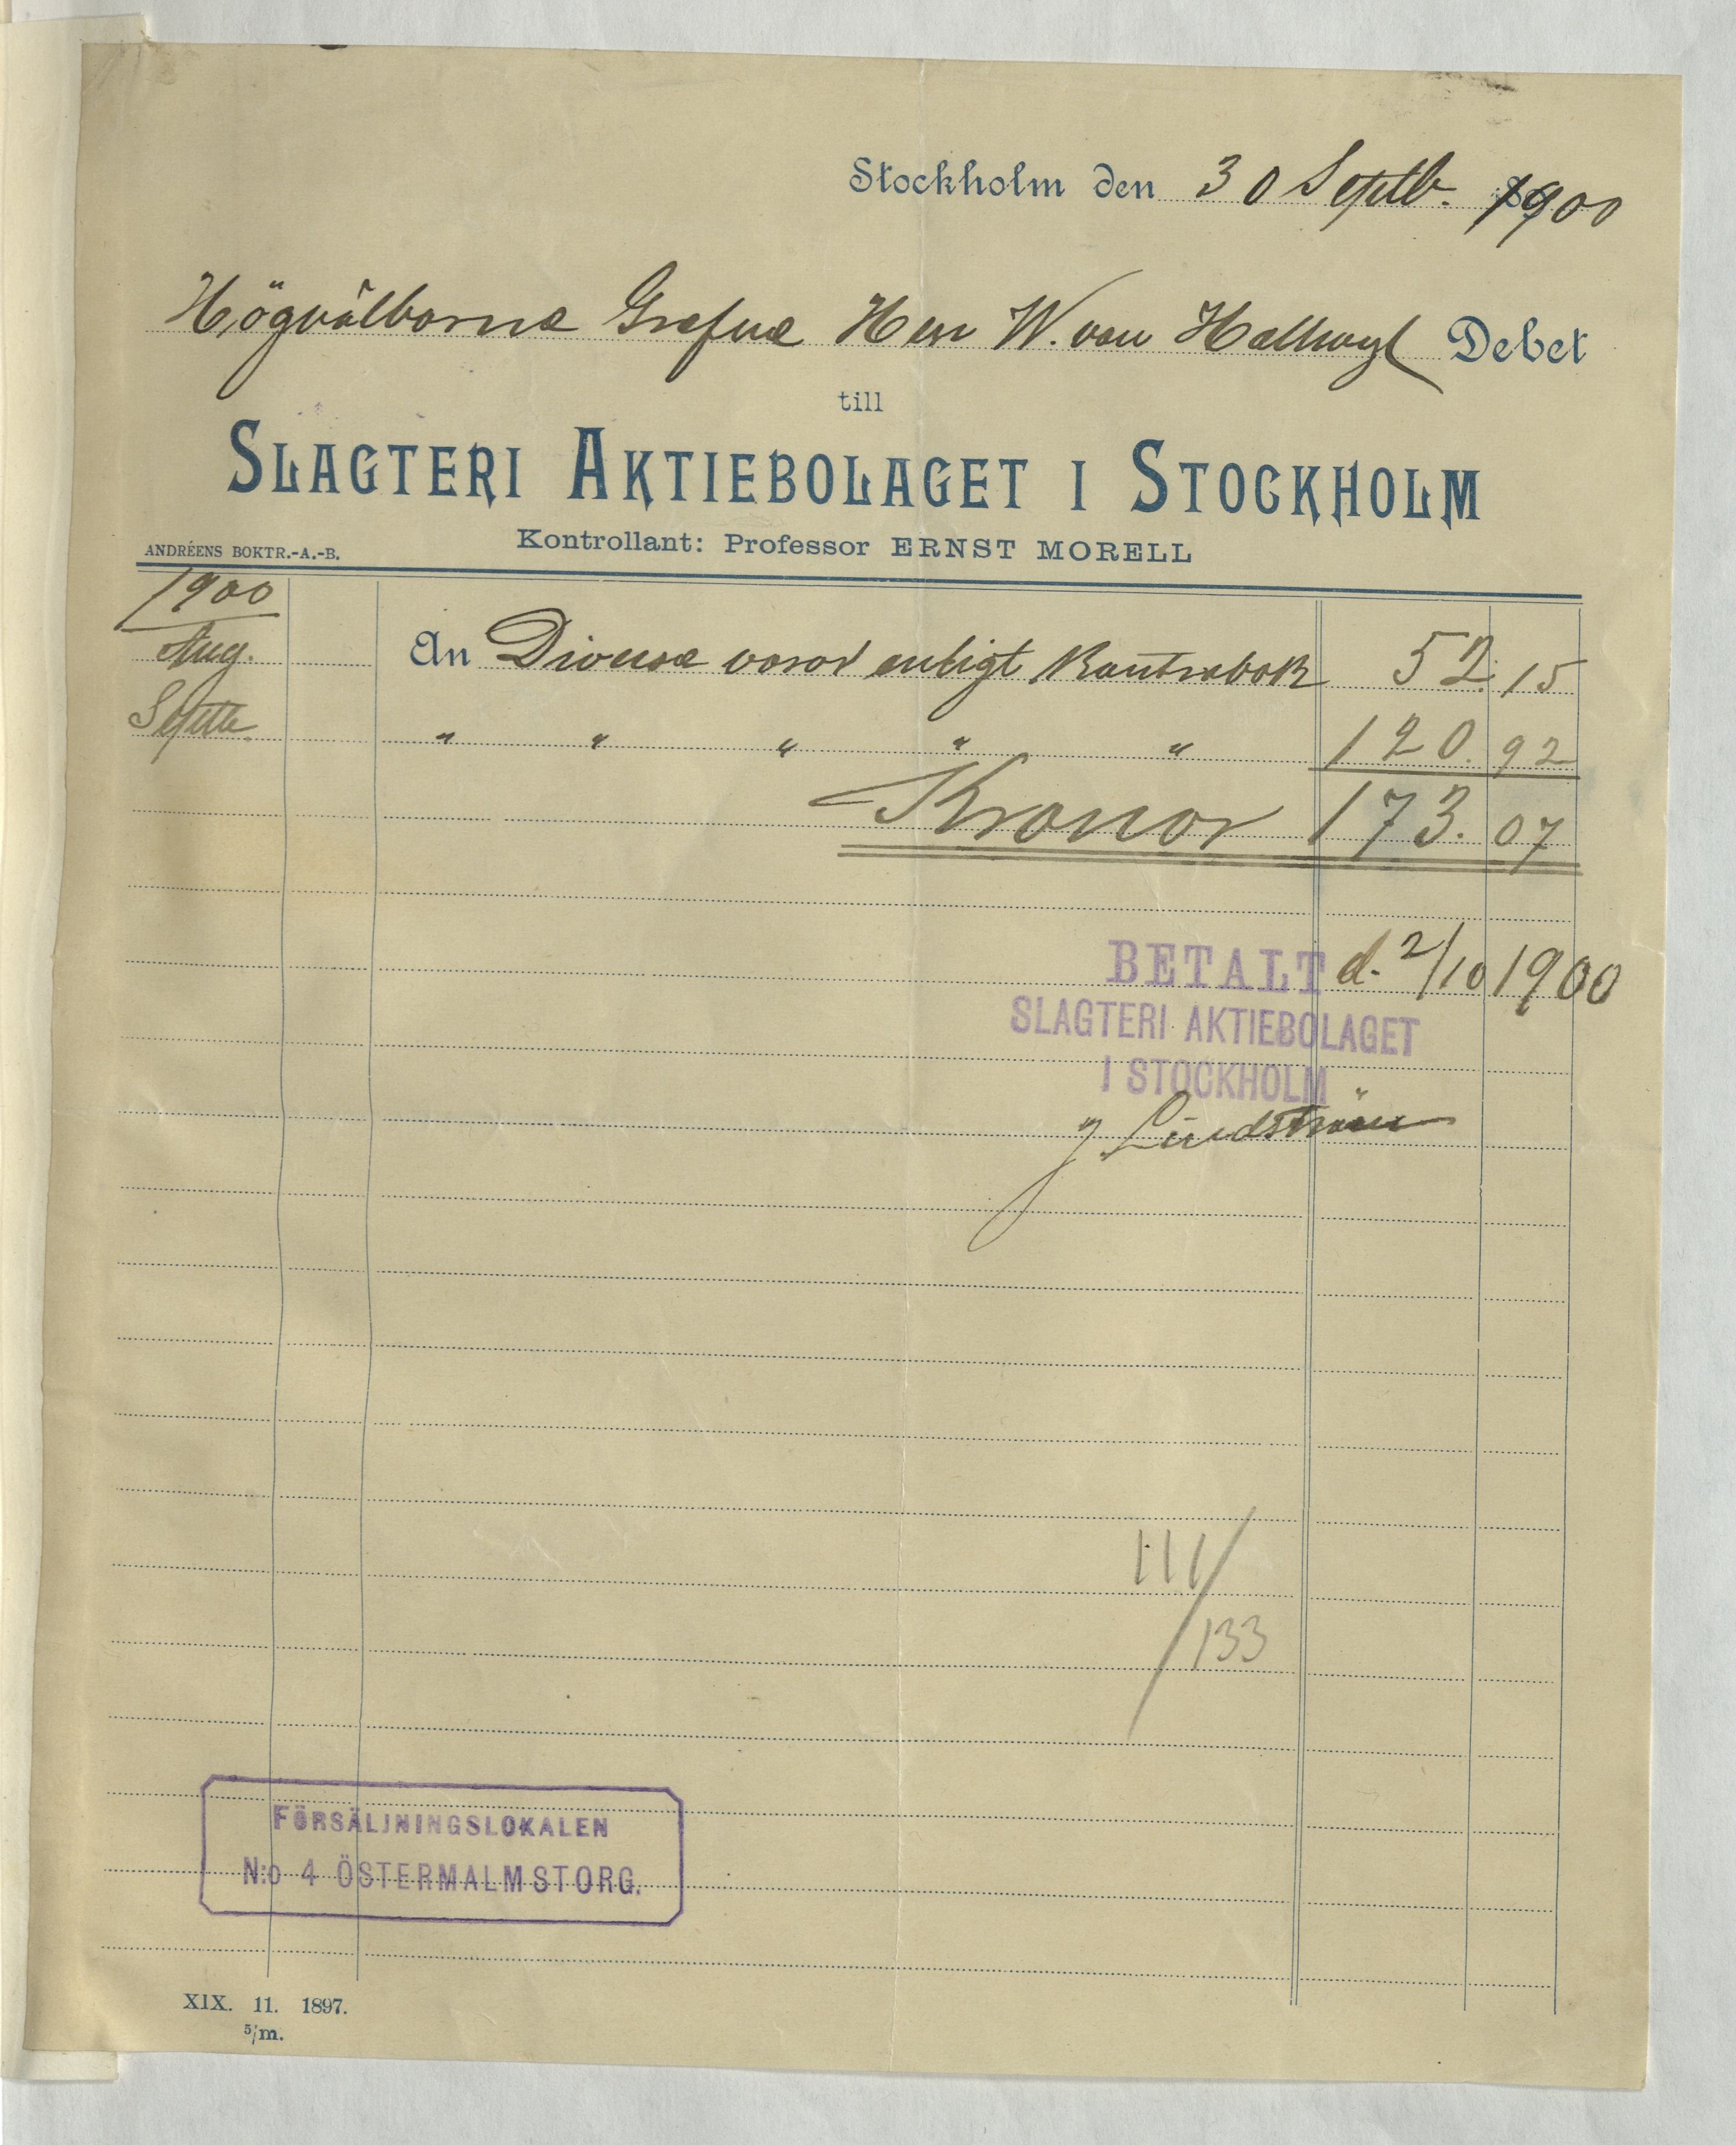 Stockholm den 30 Septb. 1900
Högvälborne Grefve Herr W. von Hallwyl Debet
till
SLAGTERI AKTIEBOLAGET I STOCKHOLM
Kontrollant: Professor ERNST MORELL
ANDRÉENS BOKTR.-A.-B.
1900
Aug. An Diverse varor enligt Kontrabok 52. 15
Septb. " " " " " 120. 92
Kronor 173. 07
BETALT d. 2/10 1900
SLAGTERI AKTIEBOLAGET
I STOCKHOLM
J Lindström
111/133
FÖRSÄLJNINGSLOKALEN
N:o 4 ÖSTERMALMSTORG.
XIX. 11. 1897.
5/m.